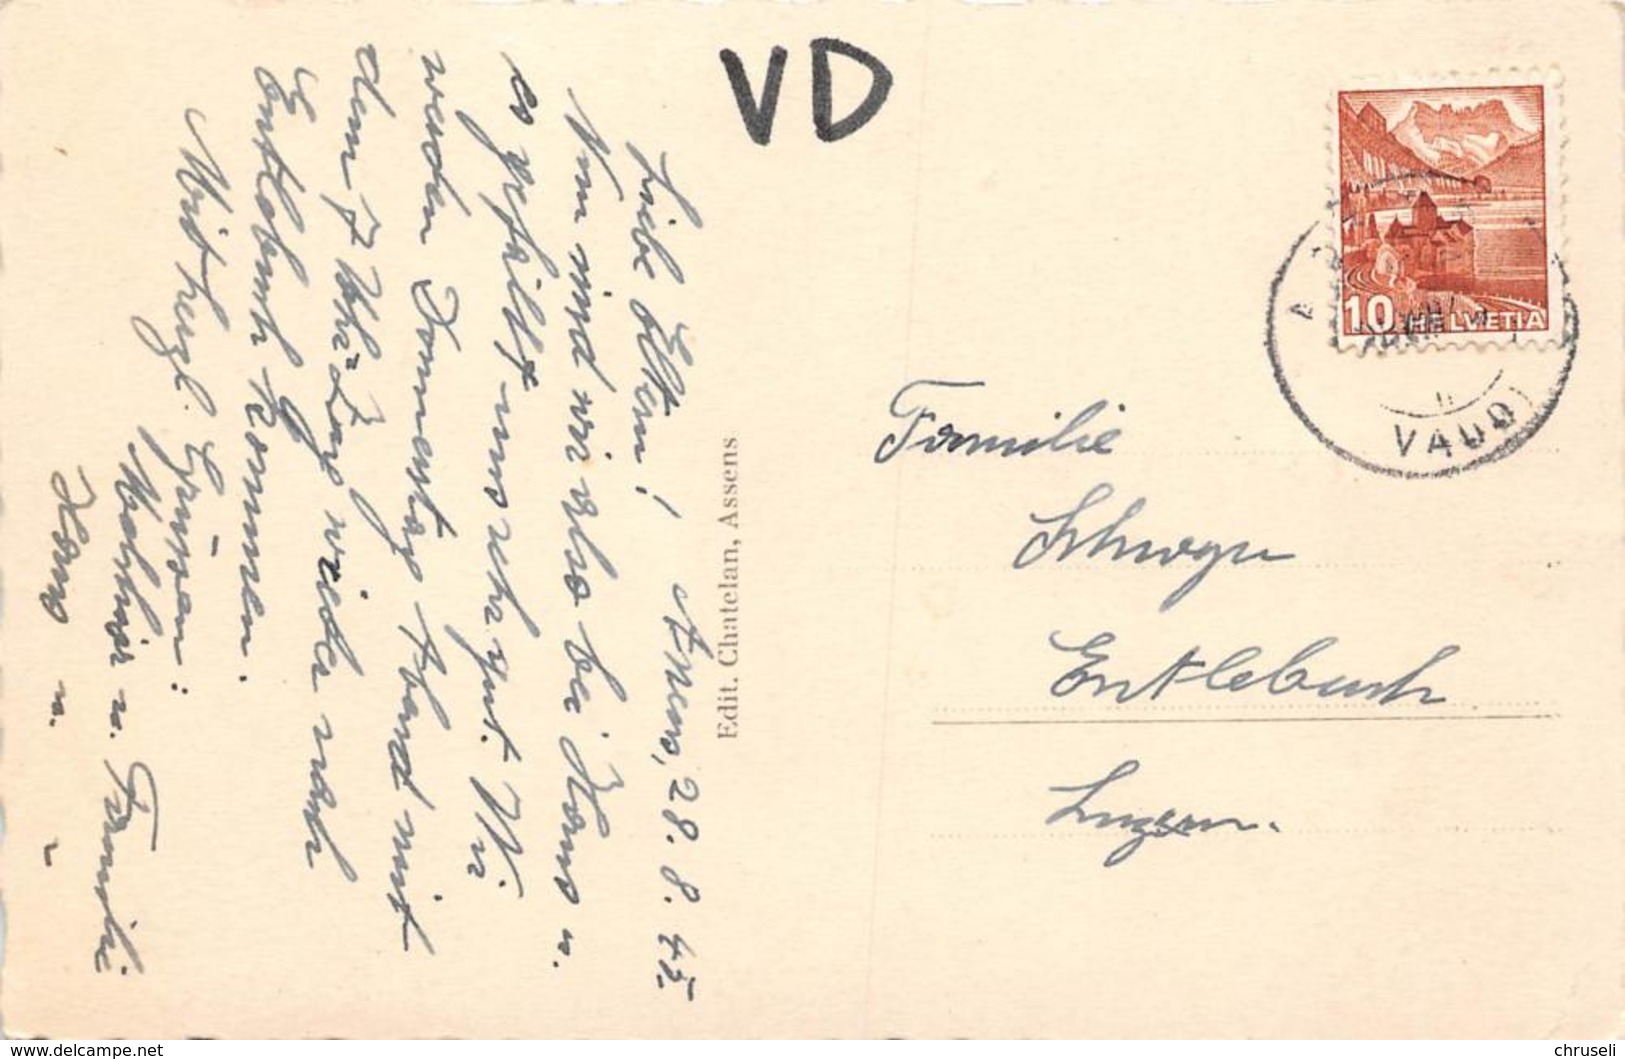 VD
Assens, 28. 8. 45.
Liebe Eltern!
Nun sind wir also bei Hans u.
es gefällt uns sehr gut. Wir
werden Donnerstag Abend mit
dem 7 Uhr Zug wieder nach
Entlebuch kommen.
Mit herzl. Grüssen:
u. Familie
Hans u.
Edit. Chatelan, Assens
10 HELVETIA
VAUD
Familie
Entlebuch
Luzern.
www.delcampe.net
chruseli